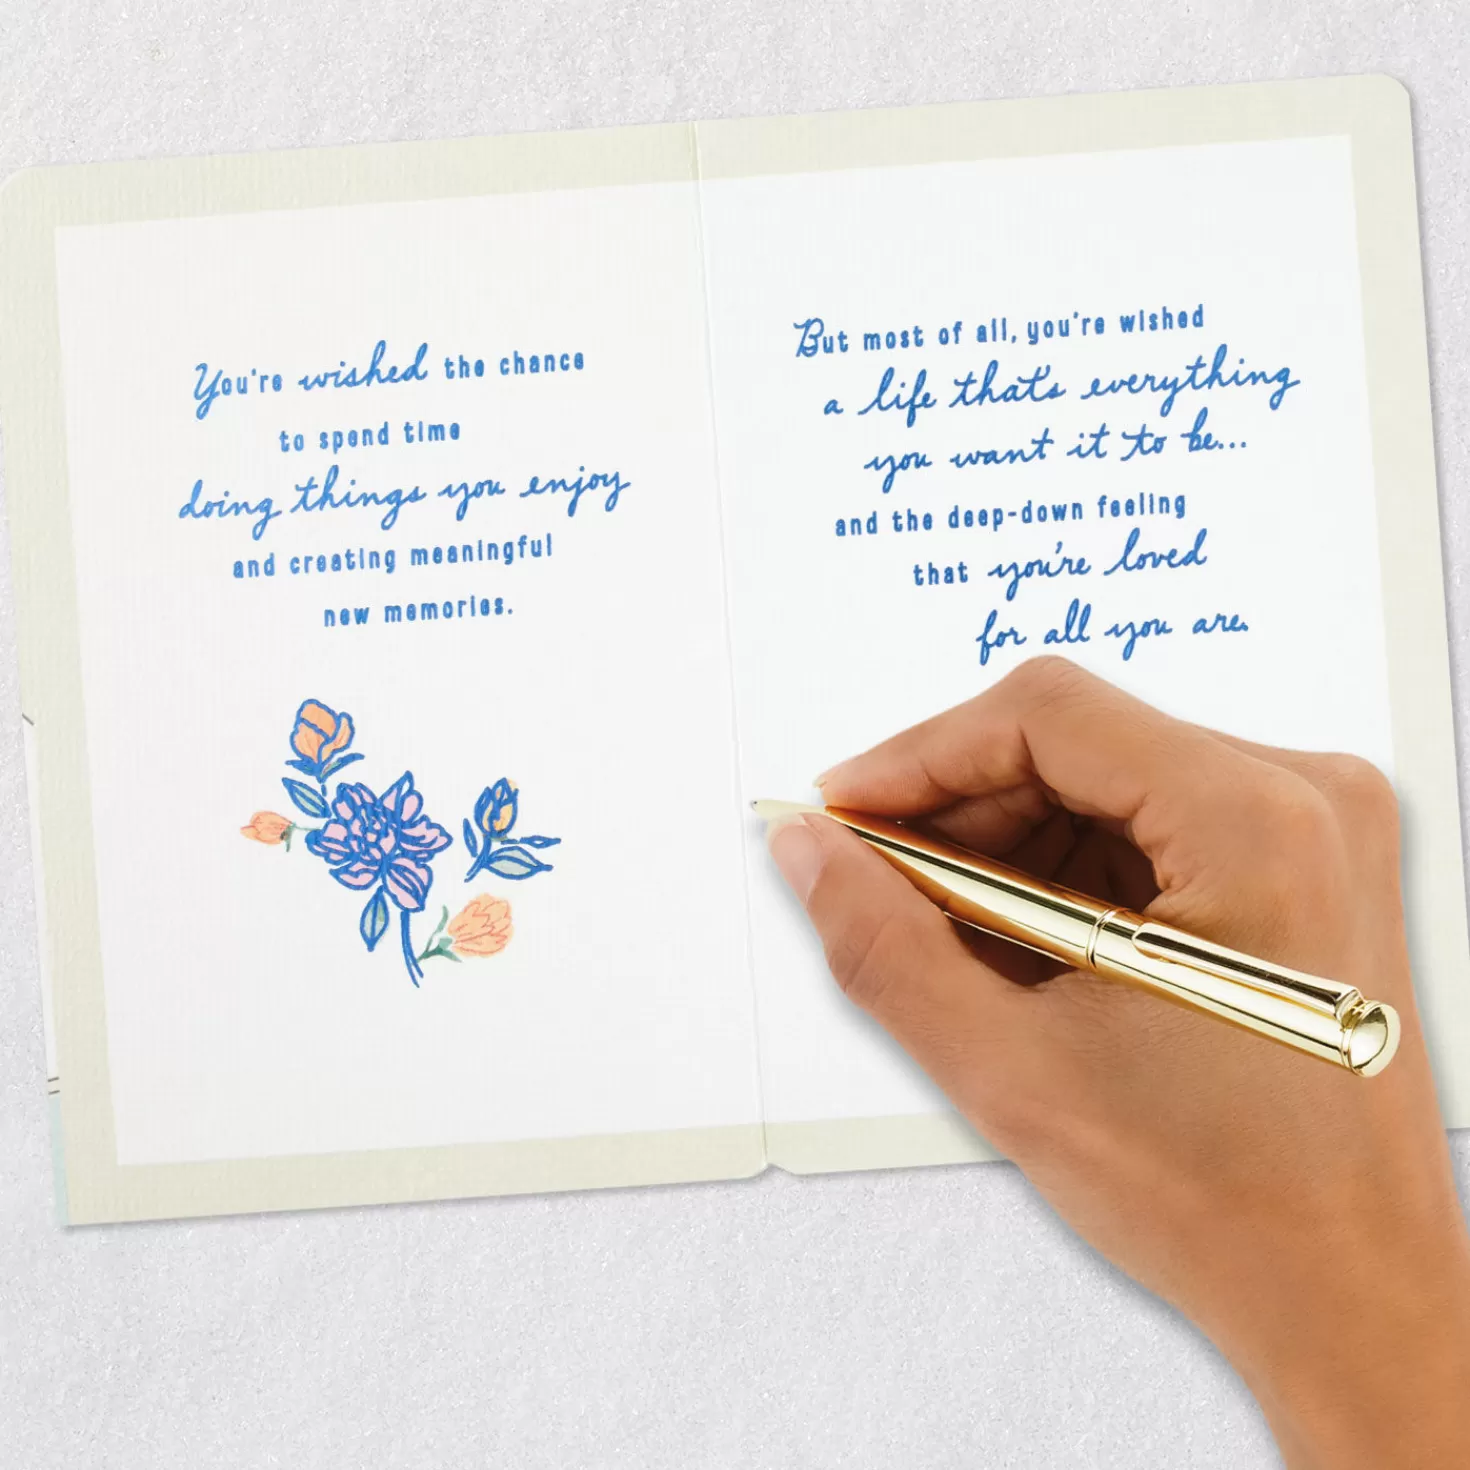 You're wished the chance
to spend time
doing things you enjoy
and creating meaningful
new memories.
But most of all, you're wished
a life that's everything
you want it to be...
and the deep-down feeling
that you're loved
for all you are.